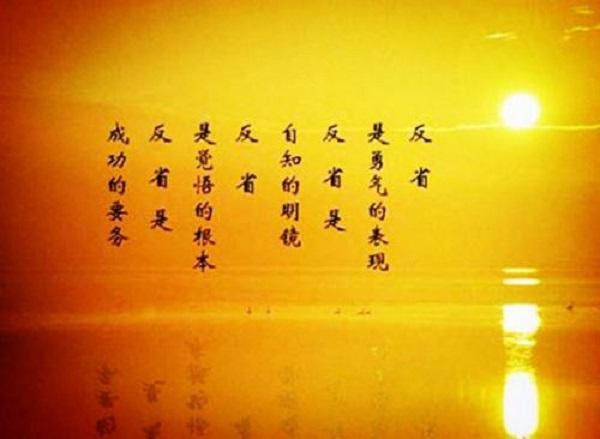 反省
是勇气的表现
反省是
自知的明镜
反省
是觉悟的根本
反省是
成功的要务